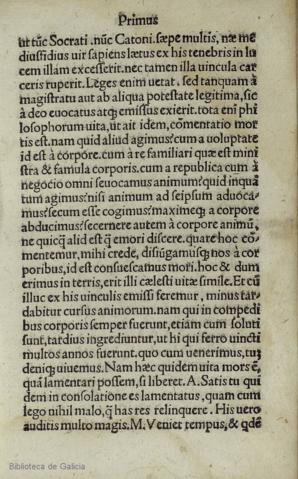 Primus
ut tūc Socrati. nūc Catoni. sæpe multis, næ me
diusfidius uir sapiens lætus ex his tenebris in lu
cem illam excesserit. nec tamen illa uincula car
ceris ruperit. Leges enim uetāt. sed tanquam à
magistratu aut ab aliqua potestate legitima, sic
à deo euocatus atq; emissus exierit. tota eni phi
losophorum uita, ut ait idem, cōmentatio mor
tis est. nam quid aliud agimus? cum a uoluptate
id est à corpore. cum à re familiari quæ est mini
stra & famula corporis. cum a republica cum à
negocio omni seuocamus animum? quid inquā
tum agimus? nisi animum ad seipsum aduoca-
mus? secum esse cogimus? maximeq; a corpore
abducimus? secernere autem à corpore animū,
ne quicq̄ alid est q̄ emori discere. quare hoc cō-
mentemur, mihi crede, disiūgamusq; nos à cor
poribus, id est consuescamus mori. hoc & dum
erimus in terris, erit illi cælesti uitæ simile. Et cū
illuc ex his uinculis emissi feremur, minus tar-
dabitur cursus animorum. nam qui in compedi
bus corporis semper fuerunt, etiam cum soluti
sunt, tardius ingrediuntur, ut hi qui ferro uincti
multos annos fuerunt. quo cum uenerimus, tuȝ
deniq; uiuemus. Nam hæc quidem uita mors ē,
quā lamentari possem, si liberet. A. Satis tu qui
dem in consolatione es lamentatus, quam cum
lego nihil malo, q̄ has res relinquere. His uero
auditis multo magis. M. Veniet tempus, & qdē
Biblioteca de Galicia